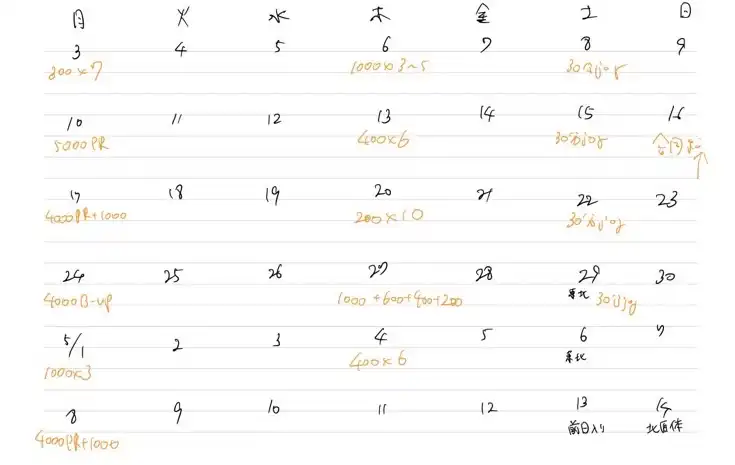 月 火 水 木 金 土 日
3 4 5 6 7 8 9
300×7 1000×3~5 30分jog
10 11 12 13 14 15 16
5000PR 400×6 30分jog
17 18 19 20 21 22 23
4000PR+1000 200×10 30分jog
24 25 26 27 28 29 30
4000B-up 1000+600+400+200 東北 30分jog
5/1 2 3 4 5 6 7
1000×3 400×6 東北
8 9 10 11 12 13 14
4000PR+1000 前日入り 北医体